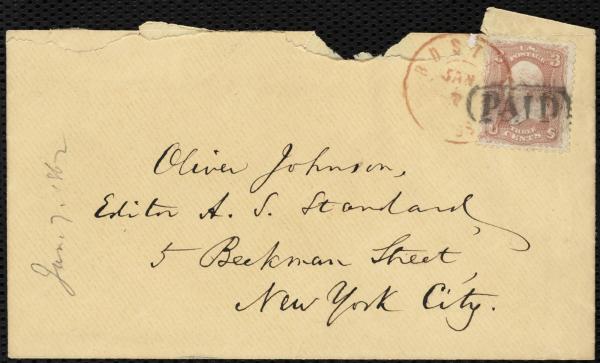 BOST
JAN
7
U.S. POSTAGE
3
PAID
U S
THREE
CENTS
Oliver Johnson,
Editor A. S. Standard,
5 Beekman Street,
New York City.
Jan. 7. 1862